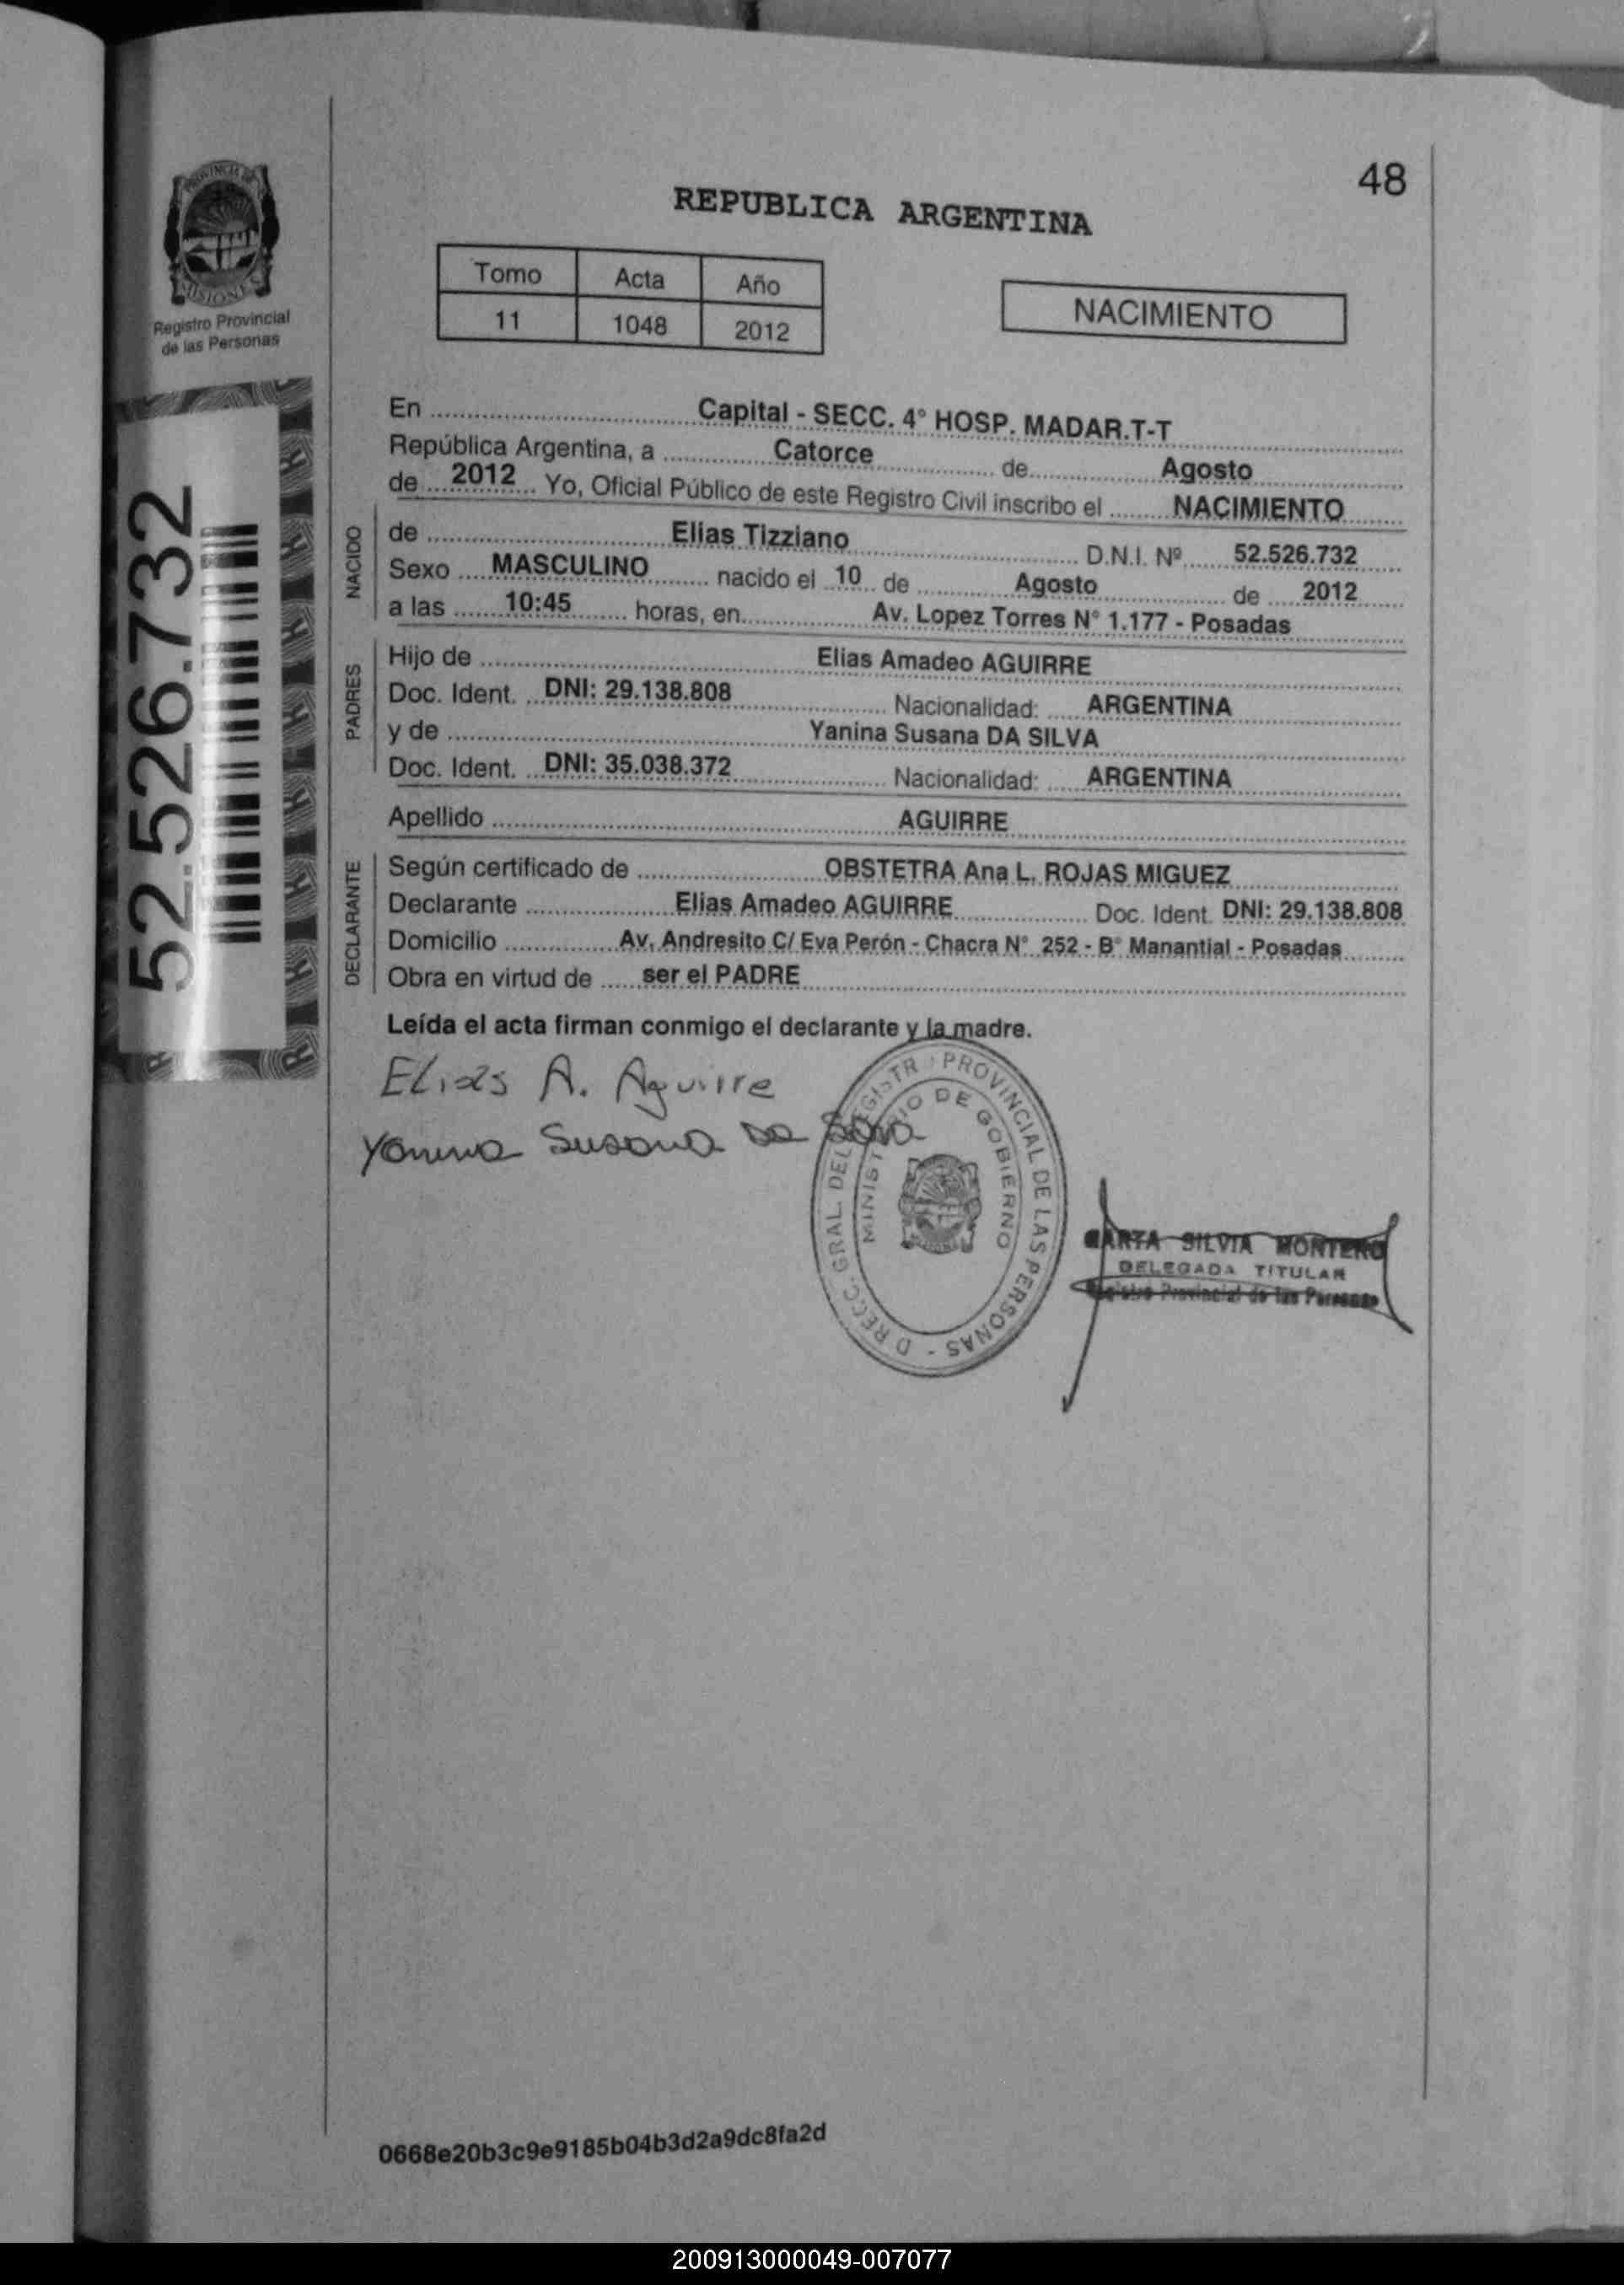 48
REPUBLICA ARGENTINA
PROVINCIA DE
MISIONES
Registro Provincial
de las Personas
Tomo Acta Año
11 1048 2012
NACIMIENTO
52.526.732
En Capital - SECC. 4° HOSP. MADAR.T-T
República Argentina, a Catorce de Agosto
de 2012 Yo, Oficial Público de este Registro Civil inscribo el NACIMIENTO
NACIDO
de Elias Tizziano D.N.I. Nº 52.526.732
Sexo MASCULINO nacido el 10 de Agosto de 2012
a las 10:45 horas, en Av. Lopez Torres N° 1.177 - Posadas
PADRES
Hijo de Elias Amadeo AGUIRRE
Doc. Ident. DNI: 29.138.808 Nacionalidad: ARGENTINA
y de Yanina Susana DA SILVA
Doc. Ident. DNI: 35.038.372 Nacionalidad: ARGENTINA
Apellido AGUIRRE
DECLARANTE
Según certificado de OBSTETRA Ana L. ROJAS MIGUEZ
Declarante Elias Amadeo AGUIRRE Doc. Ident. DNI: 29.138.808
Domicilio Av. Andresito C/ Eva Perón - Chacra N° 252 - B° Manantial - Posadas
Obra en virtud de ser el PADRE
Leída el acta firman conmigo el declarante y la madre.
Elias A. Aguirre
Yanina Susana Da Silva
D RECC. GRAL. DEL REGISTR PROVINCIAL DE LAS PERSONAS -
MINISTERIO DE GOBIERNO
SILVIA MONTERO
DELEGADA TITULAR
Registro Provincial de las Personas
0668e20b3c9e9185b04b3d2a9dc8fa2d
200913000049-007077